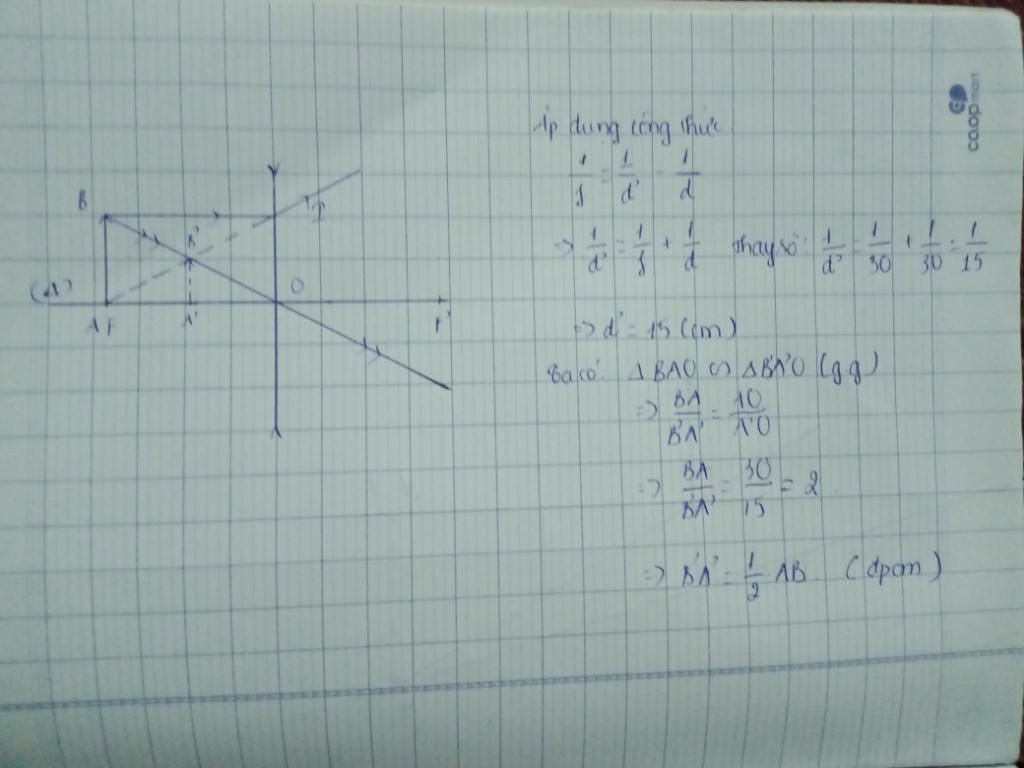 co.opmart
Áp dụng công thức
1/f = 1/d' - 1/d
=> 1/d' = 1/f + 1/d Thay số: 1/d' = 1/30 + 1/30 = 1/15
=> d' = 15 (cm)
Ta có: ΔBAO ∽ ΔB'A'O (g.g)
=> BA/B'A' = AO/A'O
=> BA/B'A' = 30/15 = 2
=> B'A' = 1/2 AB. (đpcm)
B
B'
I
(Δ)
A F
A'
O
F'